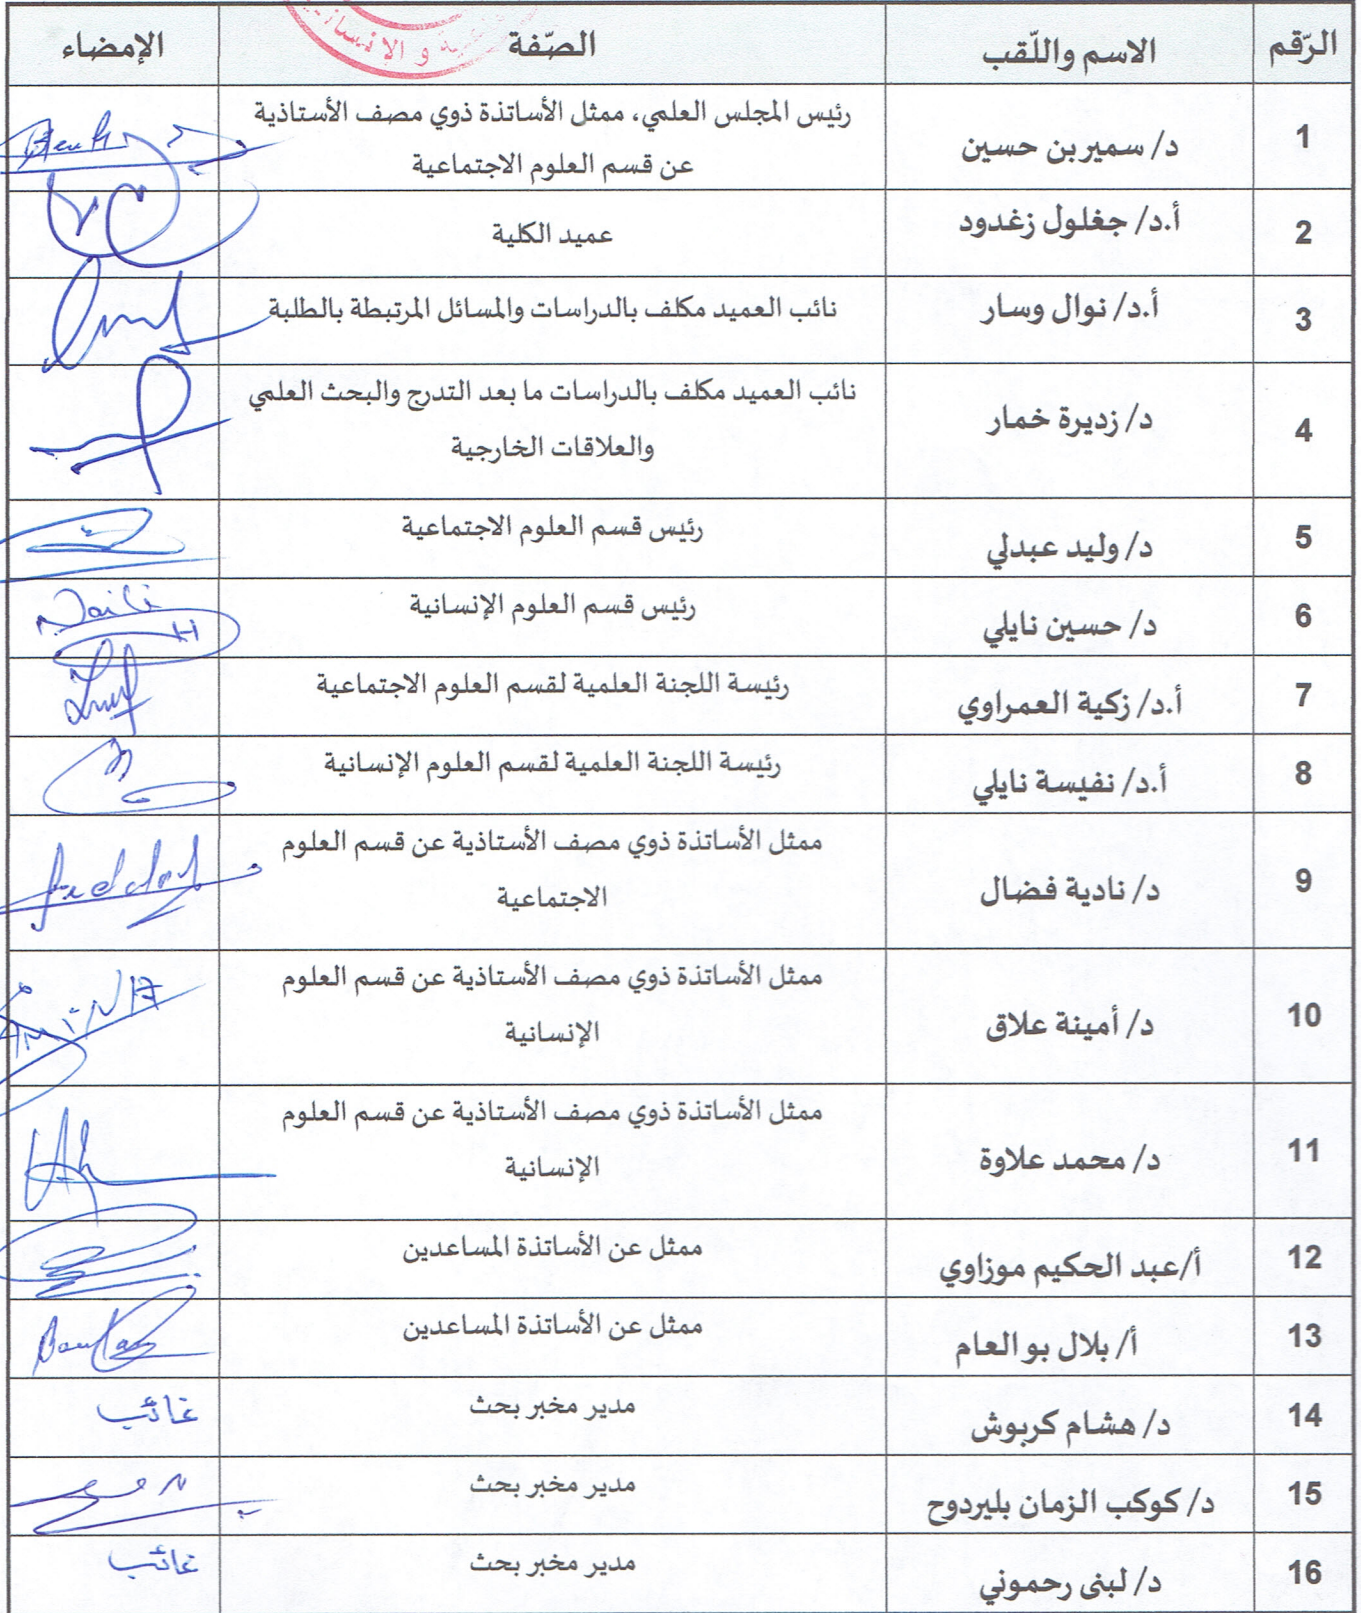 الرّقم الاسم واللّقب الصّفة الإمضاء
و الإنسا
1 د/ سمير بن حسين رئيس المجلس العلمي، ممثل الأساتذة ذوي مصف الأستاذية
عن قسم العلوم الاجتماعية
2 أ.د/ جغلول زغدود عميد الكلية
3 أ.د/ نوال وسار نائب العميد مكلف بالدراسات والمسائل المرتبطة بالطلبة
4 د/ زديرة خمار نائب العميد مكلف بالدراسات ما بعد التدرج والبحث العلمي
والعلاقات الخارجية
5 د/ وليد عبدلي رئيس قسم العلوم الاجتماعية
6 د/ حسين نايلي رئيس قسم العلوم الإنسانية Naili H
7 أ.د/ زكية العمراوي رئيسة اللجنة العلمية لقسم العلوم الاجتماعية
8 أ.د/ نفيسة نايلي رئيسة اللجنة العلمية لقسم العلوم الإنسانية
9 د/ نادية فضال ممثل الأساتذة ذوي مصف الأستاذية عن قسم العلوم
الاجتماعية
10 د/ أمينة علاق ممثل الأساتذة ذوي مصف الأستاذية عن قسم العلوم
الإنسانية
11 د/ محمد علاوة ممثل الأساتذة ذوي مصف الأستاذية عن قسم العلوم
الإنسانية
12 أ/عبد الحكيم موزاوي ممثل عن الأساتذة المساعدين
13 أ/ بلال بو العام ممثل عن الأساتذة المساعدين
14 د/ هشام كربوش مدير مخبر بحث غائب
15 د/ كوكب الزمان بليردوح مدير مخبر بحث
16 د/ لبنى رحموني مدير مخبر بحث غائب